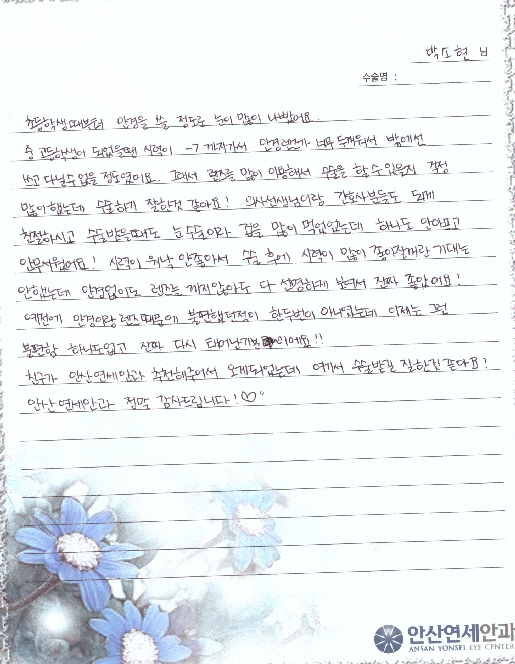 박소현 님
수술명 :
초등학생때부터 안경을 쓸 정도로 눈이 많이 나빴어요.
중 고등학생이 되었을땐 시력이 -7 까지가서 안경렌즈가 너무 두꺼워서 밖에선
쓰고 다닐수 없을 정도였어요. 그래서 렌즈를 많이 이용해서 수술을 할 수 있을지 걱정
많이 했는데 수술하기 잘한것 같아요! 의사선생님이랑 간호사분들도 되게
친절하시고 수술받을때도 눈 수술이라 겁을 많이 먹었었는데 하나도 안아프고
안무서웠어요! 시력이 워낙 안좋아서 수술 후에 시력이 많이 좋아질꺼란 기대는
안했는데 안경없이도 렌즈를 끼지않아도 다 선명하게 보여서 진짜 좋았어요!
예전에 안경이랑 렌즈때문에 불편했던점이 한두번이 아니었는데 이제는 그런
불편함 하나도없고 진짜 다시 태어난기분이에요!!
친구가 안산연세안과 추천해주어서 오게되었는데 여기서 수술받길 잘한것 같아요!
안산 연세안과 정말 감사드립니다!♡
안산연세안과
ANSAN YONSEI EYE CENTER